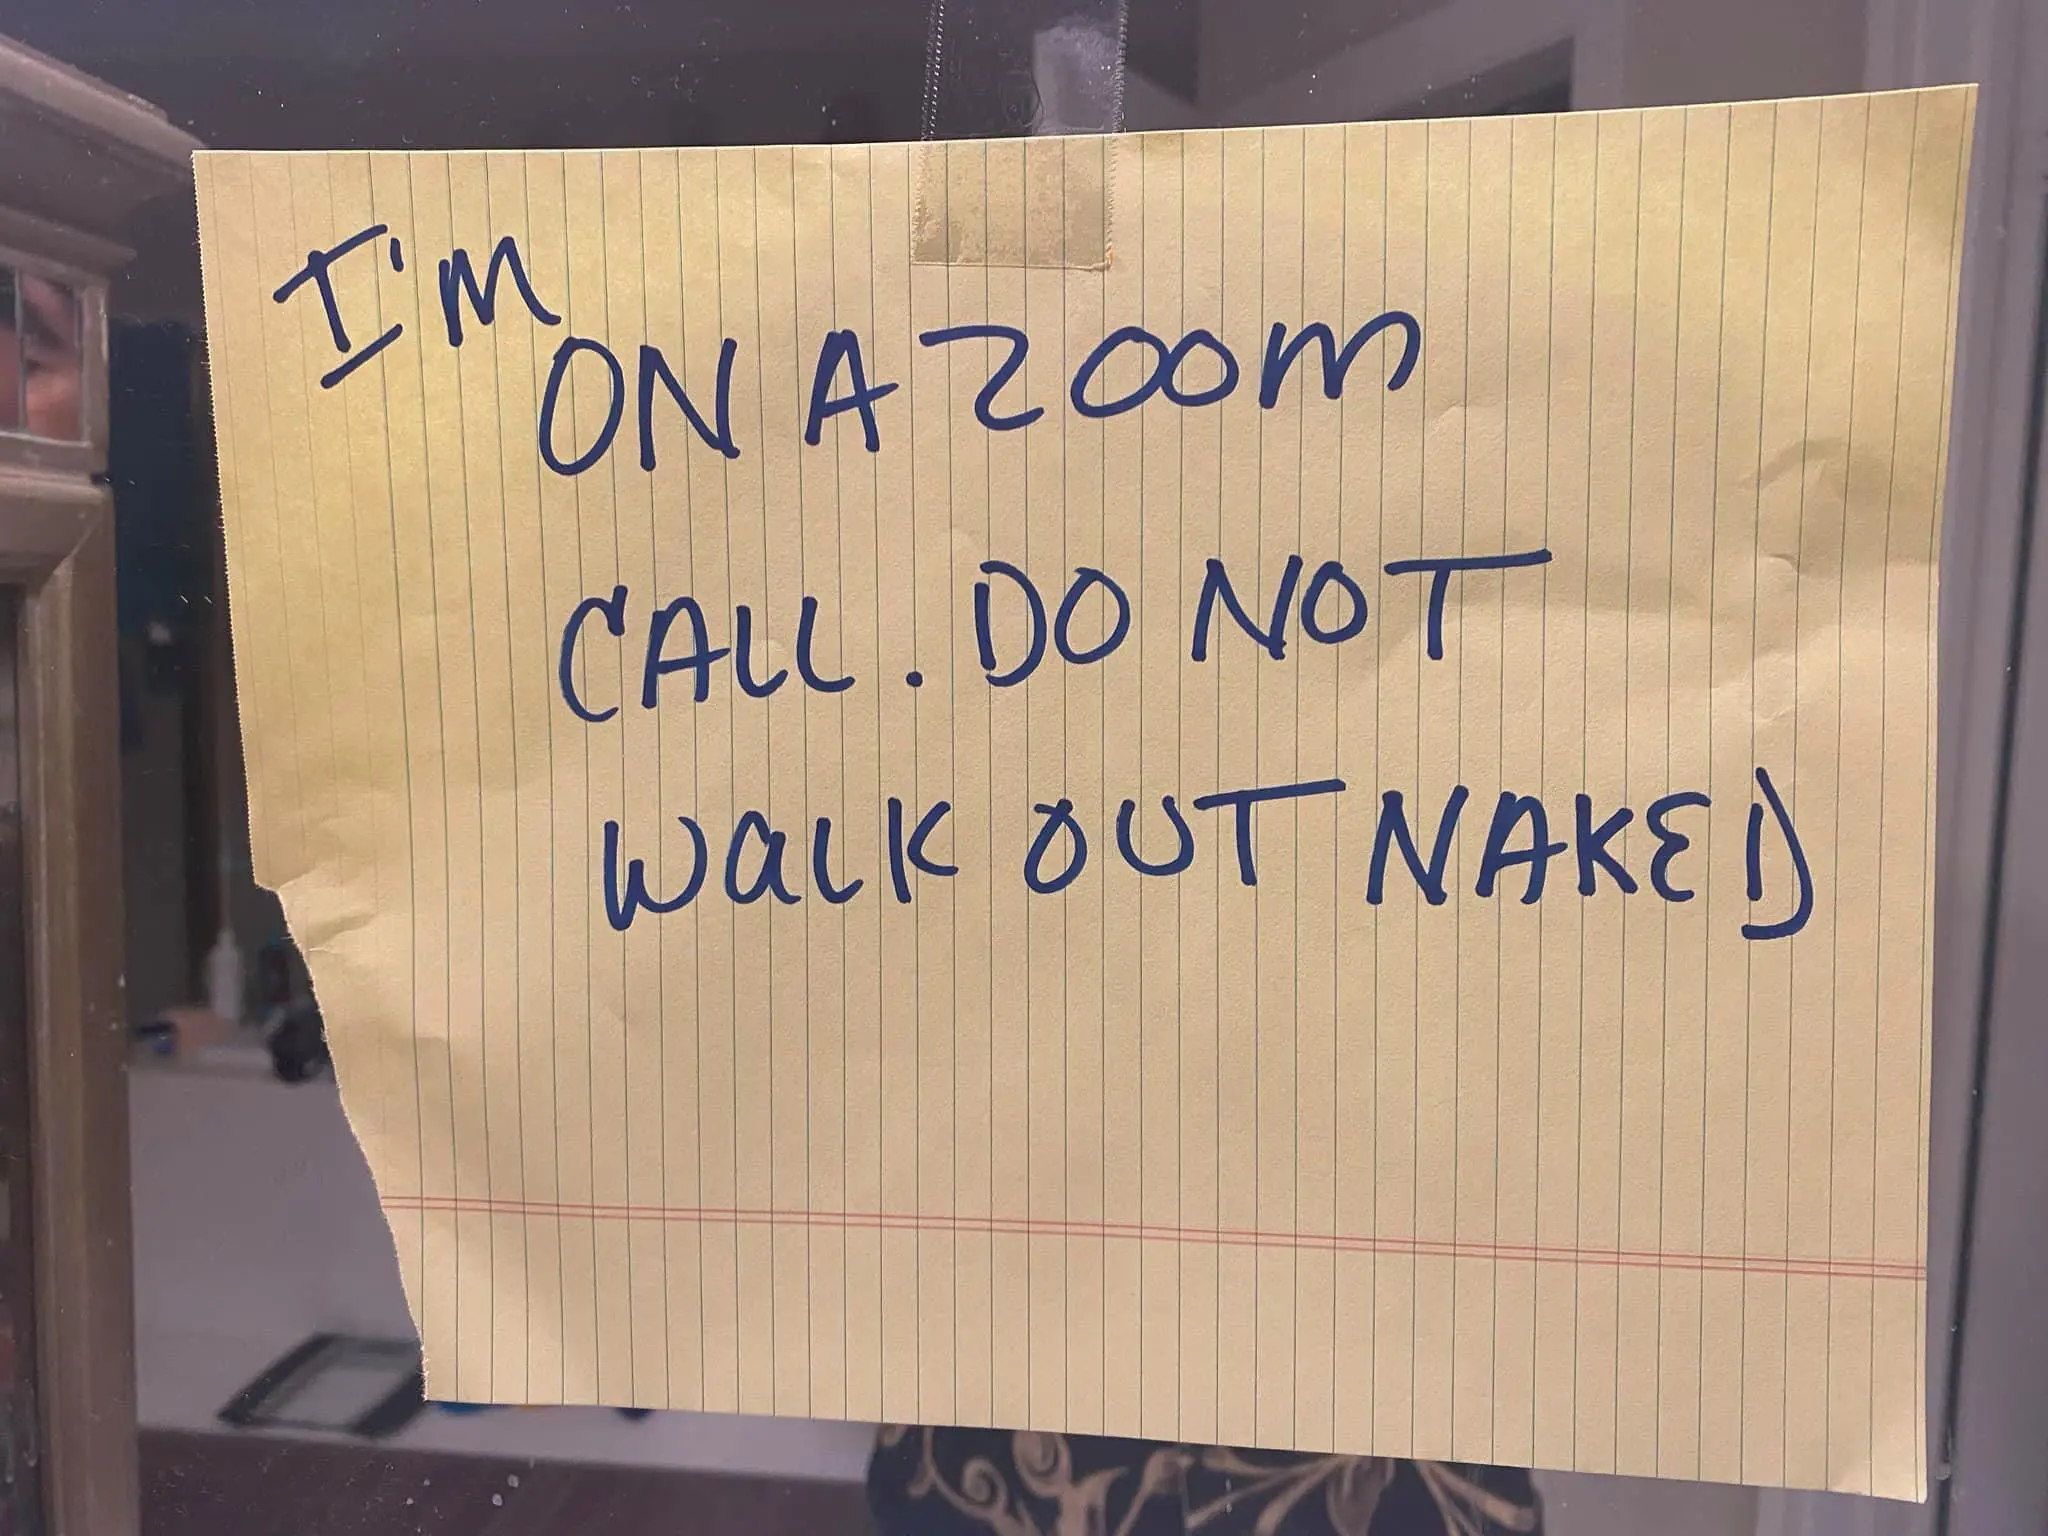 I'M
ON A ZOOM
CALL. DO NOT
WALK OUT NAKED